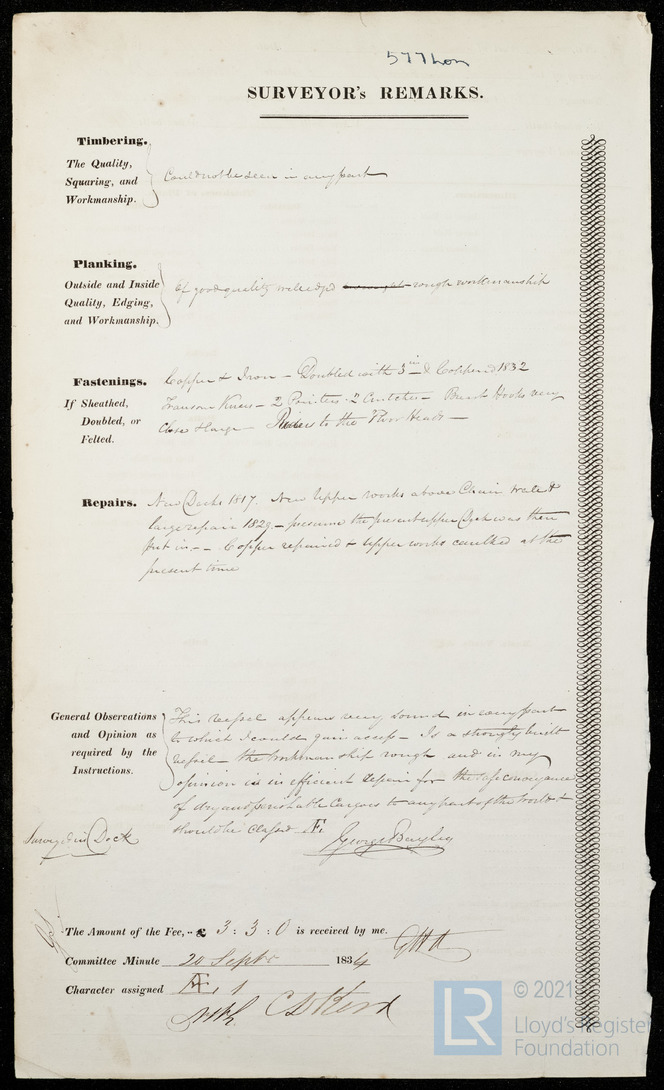 577 Lon
SURVEYOR's REMARKS.
Timbering.
The Quality,
Squaring, and
Workmanship.
Could not be seen in any part
Planking.
Outside and Inside
Quality, Edging,
and Workmanship.
Of good quality well edged rough workmanship
Fastenings.
If Sheathed,
Doubled, or
Felted.
Copper & Iron – Doubled with 3 in & Coppered 1832
Transom Knees – 2 Pointers 2 Crutches – Breast Hooks very
close & large – Riders to the Floor Heads –
Repairs.
New Decks 1817. New Upper works above Chain wale &
large repair 1829 – presume the present upper Deck was then
put in – – Copper repaired & upper works caulked at the
present time
General Observations
and Opinion as
required by the
Instructions.
This vessel appears very sound in every part
to which I could gain access – Is a strongly built
vessel – the workmanship rough and in my
opinion is in efficient repair for the safe conveyance
of dry and perishable Cargoes to any part of the World &
should be classed Æ1
Surveyed in Dock
George Bayley
The Amount of the Fee, £ 3 : 3 : 0 is received by me.
Committee Minute 20 Septr 1834
Character assigned Æ 1
© 2021
Lloyd's Register
Foundation
LR